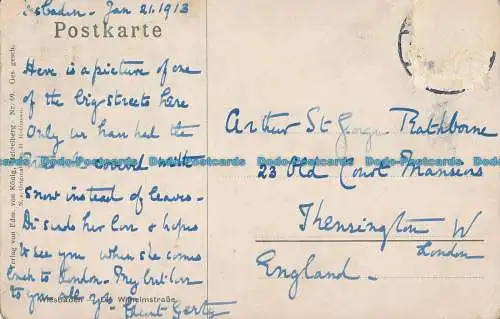 Jan 21. 1913
Postkarte
Here is a picture of one
of the big streets here
Only we have had the
trees covered with
snow instead of leaves.
Di sends her love & hopes
to see you when she comes
back to London. My best love
to you all
Aunt Gerty
Wiesbaden Die Wilhelmstraße
Verlag von Edm. von König, Heidelberg Nr. 69. Ges. gesch.
Arthur St George Rathborne
23 Old Court Mansions
Kensington W
London
England
Dodo-Postcards.com Dodo-Postcards.com Dodo-Postcards.com Dodo-Postcards.com